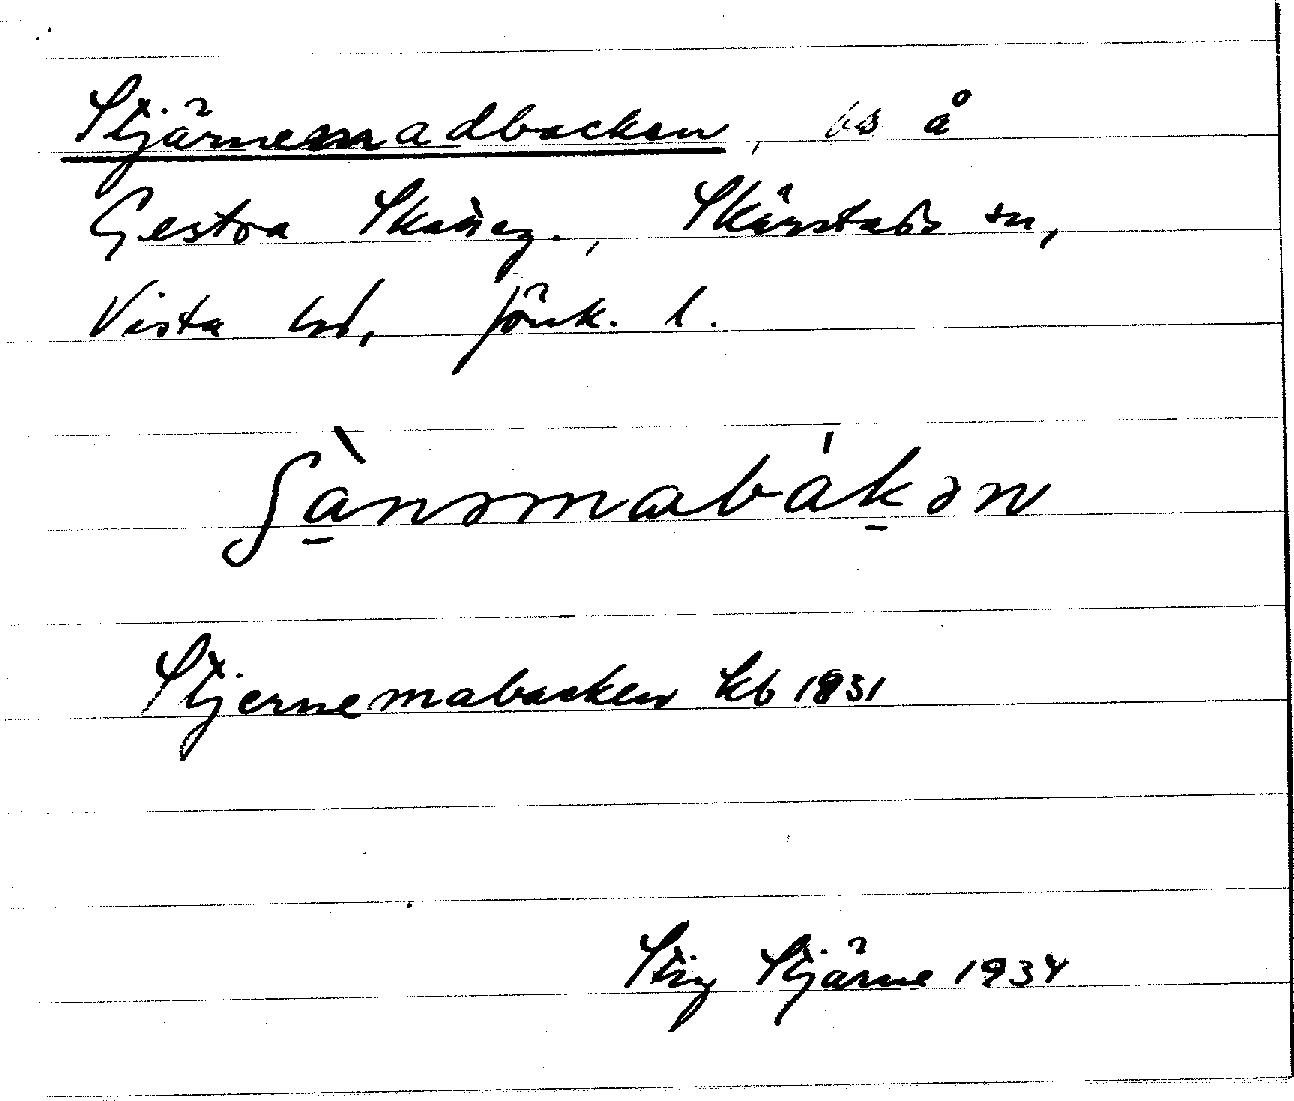 Stjärnemadbacken, bs å
Gestra Skäreg., Skärstads sn,
Vista hd, Jönk. l.
ʃànəmabákən
Stjernemabacken kb 1831
Stig Stjärne 1934